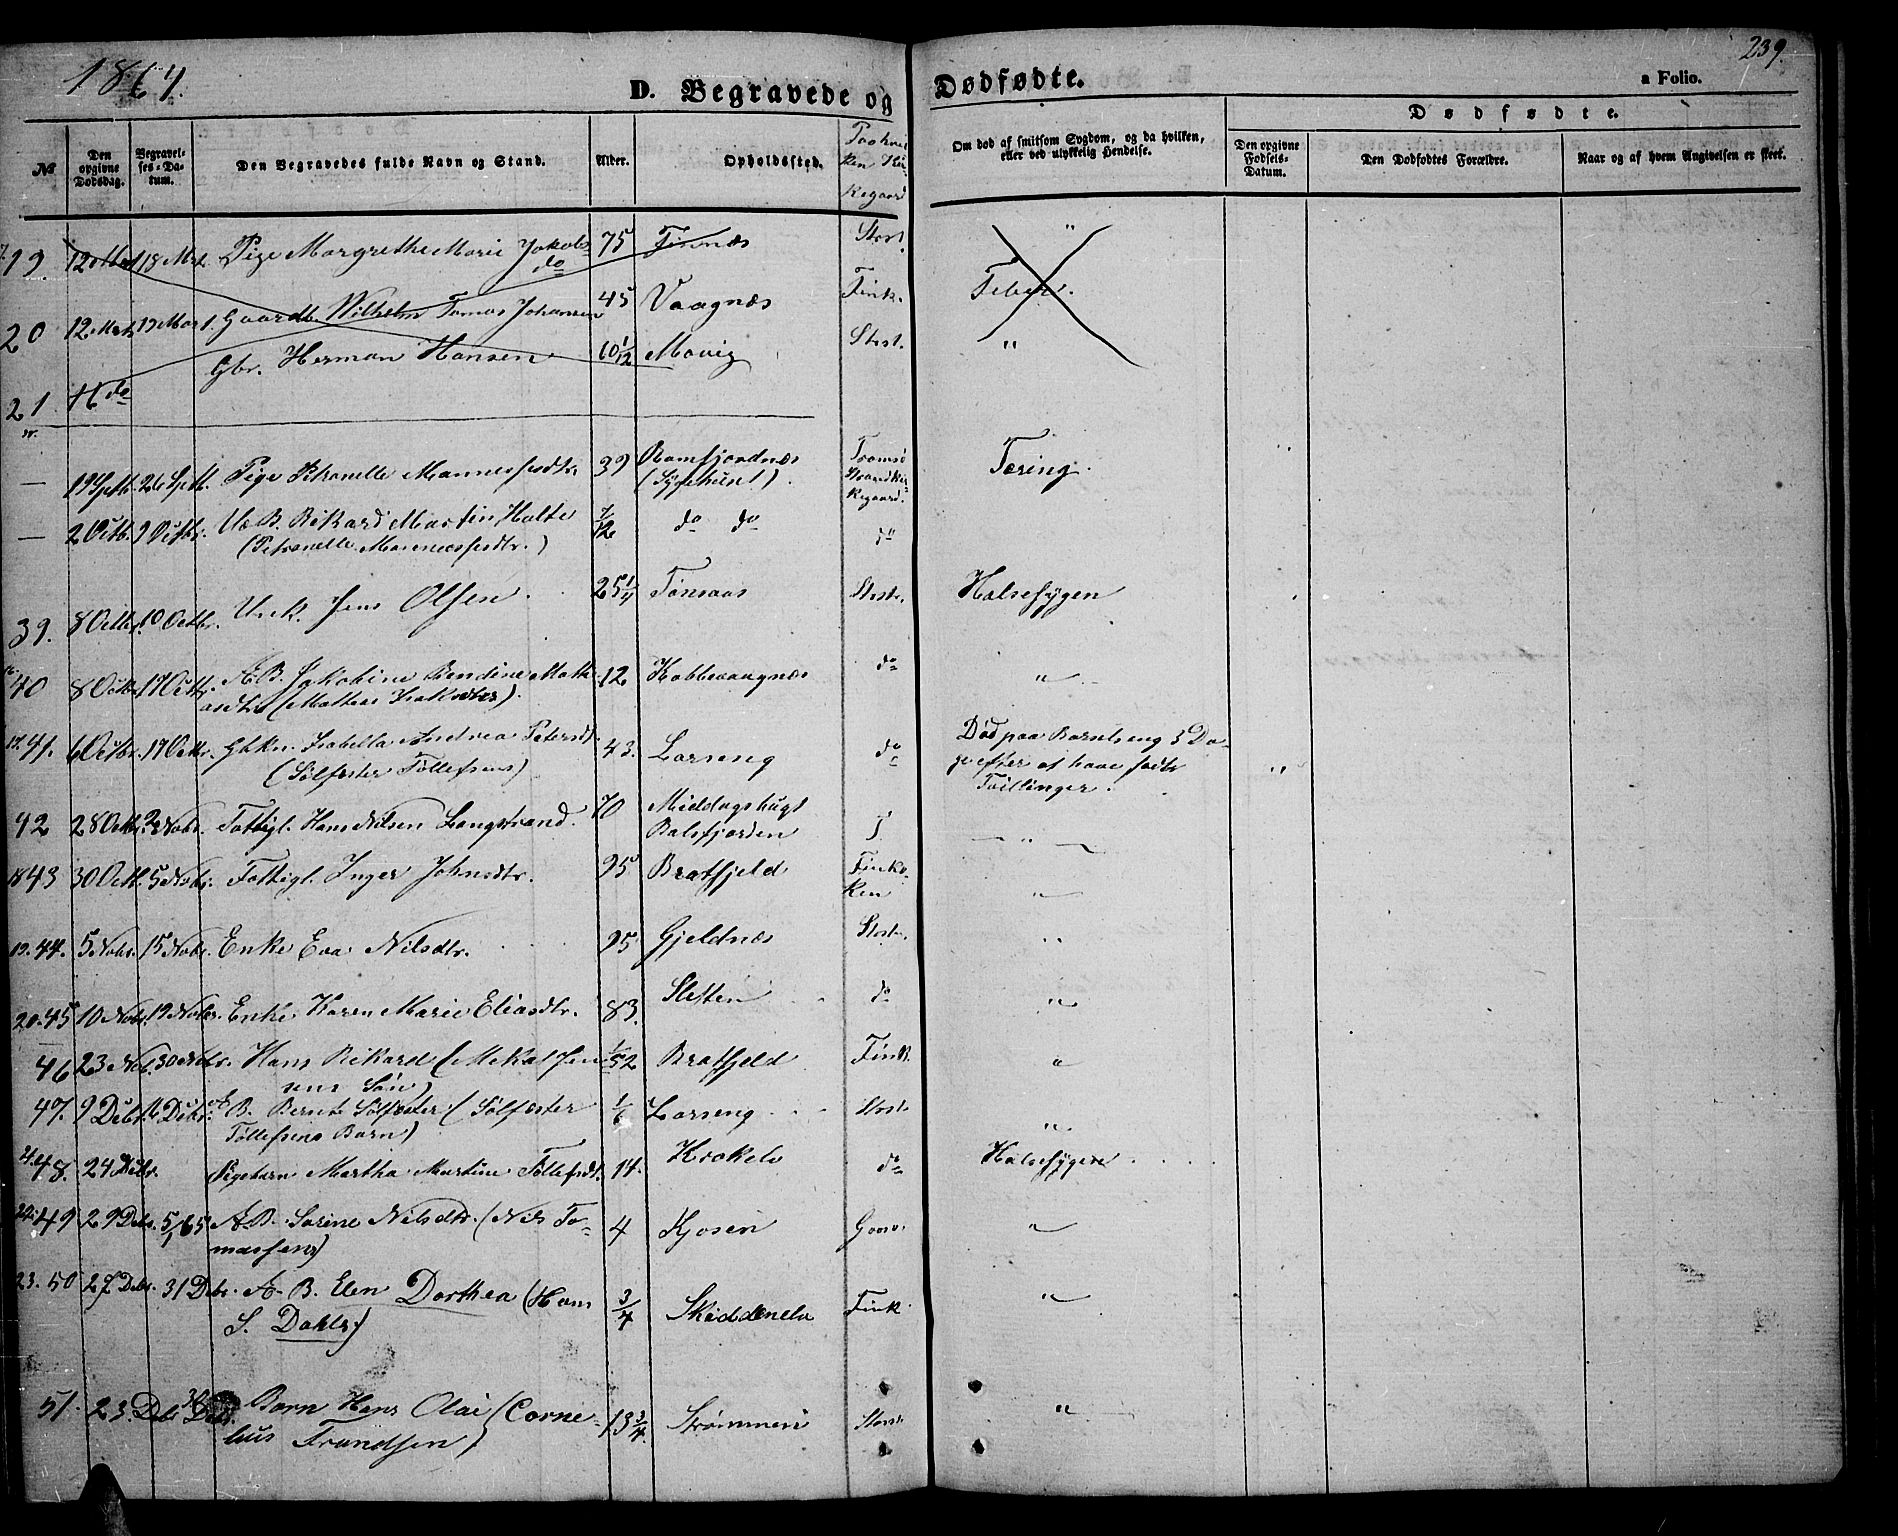 1864.
D. Begravede og Dødfødte.
239.
a Folio.
No
Den opgivne Dødsdag.
Begravelses-Datum.
Den Begravedes fulde Navn og Stand.
Alder.
Opholdssted.
Paa hvilken Kirkegaard
Om død af smitsom Sygdom, og da hvilken, eller ved ulykkelig Hendelse.
Dødfødte.
Den opgivne Fødsels-Datum.
Den Dødfødtes Forældre.
Naar og af hvem Angivelsen er skeet.
19. 12 Mai 18 Mai. Pige Margrethe Marie Jakobsdo 75 Finnæs Stest. "
20 12 Mai 19 Mai. Gaardbr. Wilhelm Tomas Johansen 45 Vaagnæs Fink. Feber.
21. do Gbr. Herman Hansen 60 1/12 Mavig Stest. "
— 19 Sptb. 26 Sptb. Pige Petronelle Mannesfesdtr. 39 Ramfjordnæs
(Sygehuset). Tromsø
Kirkegaard. Tæring.
— 2 Octb. 9 Octbr. U.æ.B. Rikard Martin Holte 7/12 do do do
(Petronelle Mannesfesdtr.)
39. 8 Octbr. 10 Octbr. Unk. Jens Olsen 25 1/4 Tønsaas Stest. Halsesygen
40 8 Octbr. 17 Octbr. Æ.B. Jakobine Bendine Mathi-
asdtr (Mathias Isaksens). 12 Kobbevaagnæs do "
17. 41. 6 Octbr. 17 Octbr. Gbkn. Isabella Andrea Petersdt.
(Sølfester Tøllefsens) 43. Larseng do Død paa Barselseng 5 Da-
ge efter at have født
Tvillinger.
42 28 Octbr. 2 Nobr. Fattigl. Hans Nilsen Langstrand. 70 Middagsbugt
Balsfjorden "
18 43 30 Octb. 5 Nobr. Fattigl. Inger Johnsdtr. 95 Bratfjeld Finkro-
ken "
19. 44. 5 Nobr. 15 Nobr. Enke Eva Nilsdtr. 95 Gjeldnæs Stest. "
20. 45 10 Nobr. 19 Nobr. Enke Karen Marie Eliasdtr. 83. Sletten do "
46 23 Nob. 30 Nobr. Hans Rikard (Mekal Jen-
sens Søn) 1/52 Bratfjeld Fink. "
47. 9 Debr. 16 Debr. Æ.B. Bernt Sølfester (Sølfester
Tøllefsens Barn) 1/6 Larseng Stest "
48. 24 Debr. Pigebarn Martha Martine Tøllefsdt. 14. Krokelv do Halsesygen
22. 49 29 Debr. 5/1 65 Æ.B. Sarine Nilsdtr. (Nils To-
massens) 4 Kjosen "
23. 50 27 Debr. 31 Debr. Æ.B. Elen Dorthea (Hans
S. Dahls) 3/4 Skiddenelv Fink. "
51. 23 Debr. Debr. Barn Hans Olai (Corne-
lius Trundsen) 13 3/4. Strømmen Stest "